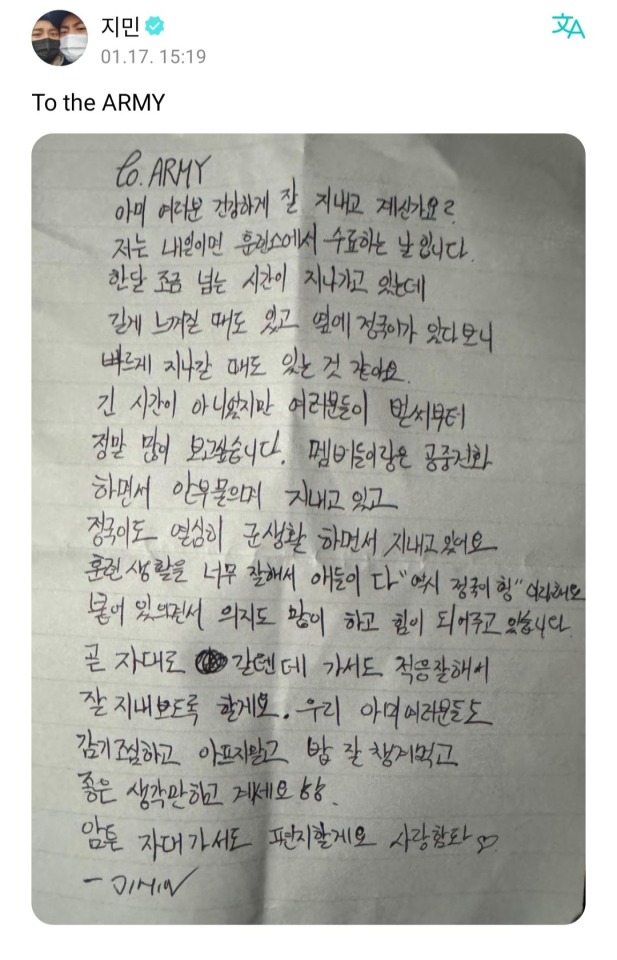 지민
01.17. 15:19
To the ARMY
to. ARMY
아미 여러분 건강하게 잘 지내고 계신가요?
저는 내일이면 훈련소에서 수료하는 날입니다.
한달 조금 넘는 시간이 지나가고 있는데
길게 느껴질 때도 있고 옆에 정국이가 있다보니
빠르게 지나갈 때도 있는 것 같아요.
긴 시간이 아니였지만 여러분들이 벌써부터
정말 많이 보고싶습니다. 멤버들이랑은 공중전화
하면서 안부물으며 지내고 있고
정국이도 열심히 군생활 하면서 지내고 있어요
훈련 생활을 너무 잘해서 애들이 다 "역시 정국이 형" 이라해요
붙어 있으면서 의지도 많이 하고 힘이 되어주고 있습니다.
곧 자대로 갈텐데 가서도 적응잘해서
잘 지내보도록 할게요. 우리 아미여러분들도
감기조심하고 아프지말고 밥 잘 챙겨먹고
좋은 생각만하고 계세요
암튼 자대가서도 편지할게요 사랑합니다 ♡
- JIMIN